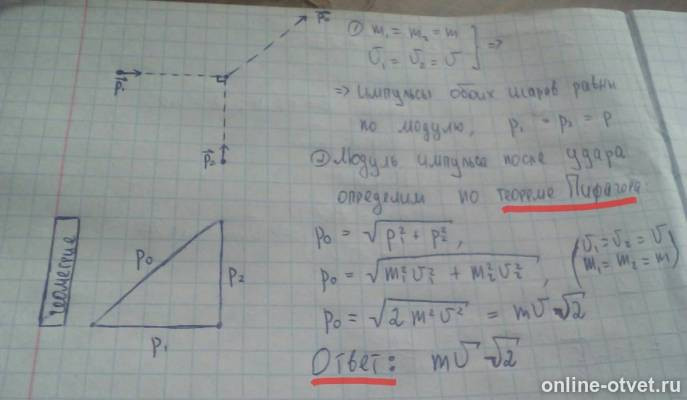 p₀
p₁
p₂
① m₁ = m₂ = m
υ₁ = υ₂ = υ ] =>
=> Импульсы обоих шаров равны
по модулю, p₁ = p₂ = p
② Модуль импульса после удара
определим по теореме Пифагора:
p₀ = √(p₁² + p₂²),
p₀ = √(m₁²υ₁² + m₂²υ₂²), (υ₁ = υ₂ = υ
m₁ = m₂ = m)
p₀ = √(2m²υ²) = mυ√2
Ответ: mυ√2
p₀
p₂
p₁
online-otvet.ru